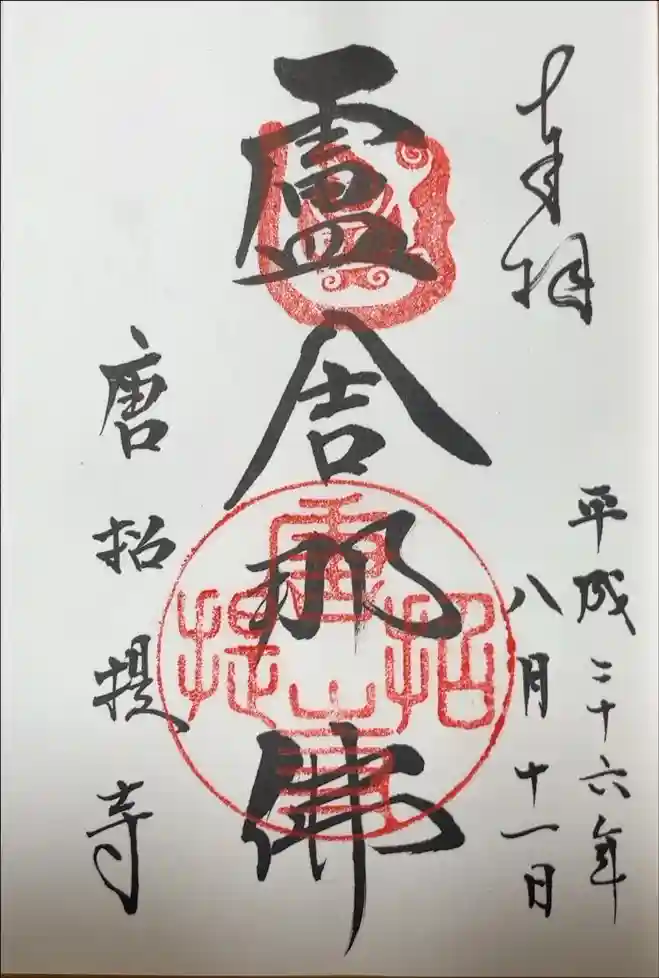 奉拝
平成二十六年
八月十一日
盧舎那佛
唐招提寺
唐招提寺